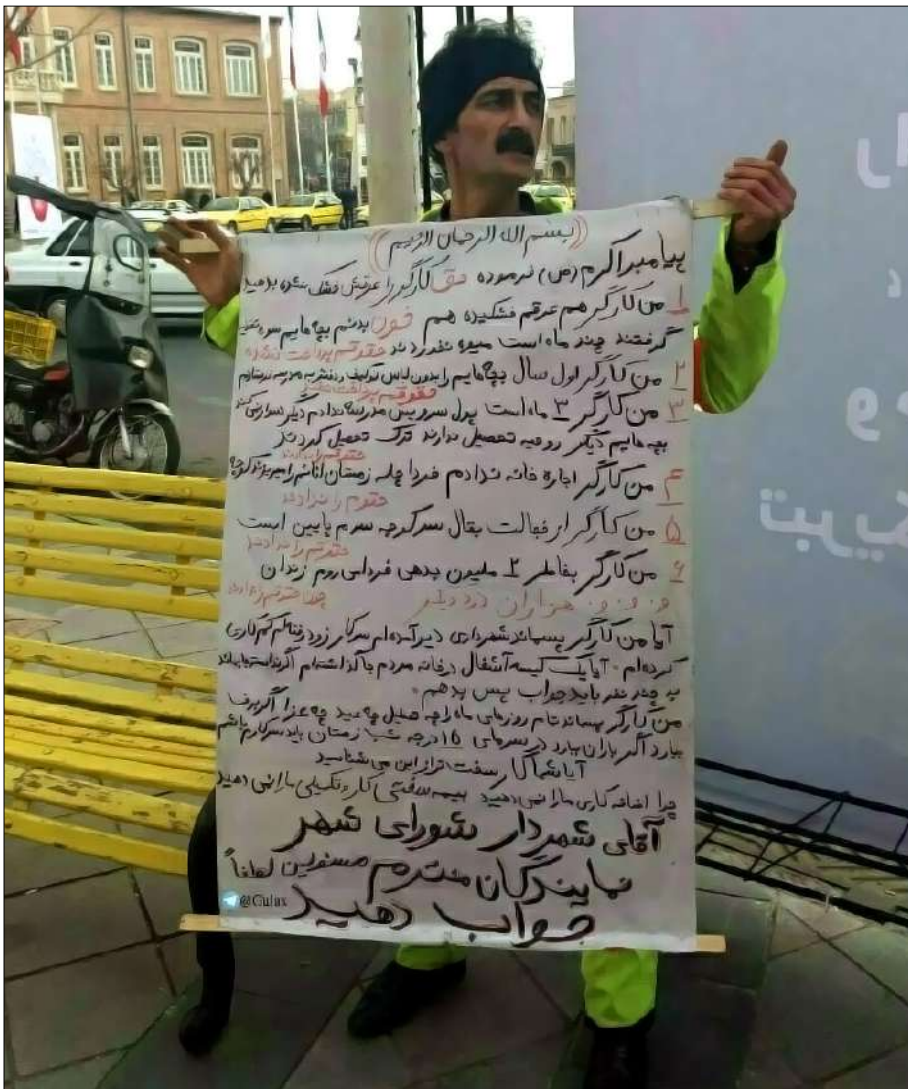 ((بسم الله الرحمان الرحیم))
پیامبر اکرم (ص) فرموده حق کارگر را عرقش خشک نشده بدهید
۱ من کارگر هم عرقم خشکیده هم خون بدنم بچه هایم سوء تغذیه
گرفتند چند ماه است میوه نخوردند حقوقم پرداخت نشده
۲ من کارگر اول سال بچه هایم را بدون لباس و دفتر به مدرسه
حقوقم پرداخت نشده
۳ من کارگر ۳ ماه است پول سرویس مدرسه ندادم دیگر سوار نمی کند
بچه هایم دیگر روحیه تحصیل ندارند ترک تحصیل کردند
حقوقم را ندادند
۴ من کارگر اجاره خانه ندادم فردا چله زمستان اثاثم را میریزند کوچه
حقوقم را ندادند
۵ من کارگر از خجالت بقال سر کوچه سرم پایین است
حقوقم را ندادند
۶ من کارگر بخاطر ۲ ملیون بدهی فردا می روم زندان
چرا حقوقم را ندادند
و و و و هزاران درد دیگر
آیا من کارگر پسماند شهرداری دیر آمده ام سر کار زود رفته ام کم کاری
کرده ام آیا یک کیسه آشغال در خانه مردم جا گذاشته ام اگر
به چند نفر باید جواب پس بدهم
من کارگر پسماند تمام روزهای ماه را چه تعطیل چه عید چه عزا اگر برف
ببارد اگر باران ببارد در سرمای 16 درجه شبها زمستان باید سر کارم باشم
آیا شما کار سخت تر از این می شناسید
چرا اضافه کاری ما را نمی دهید بیمه سختی کار و تکمیلی ما را نمی دهید
آقای شهردار شورای شهر
نمایندگان محترم مسئولین لطفاً
جواب دهید
@Culax
را
و
تبریک